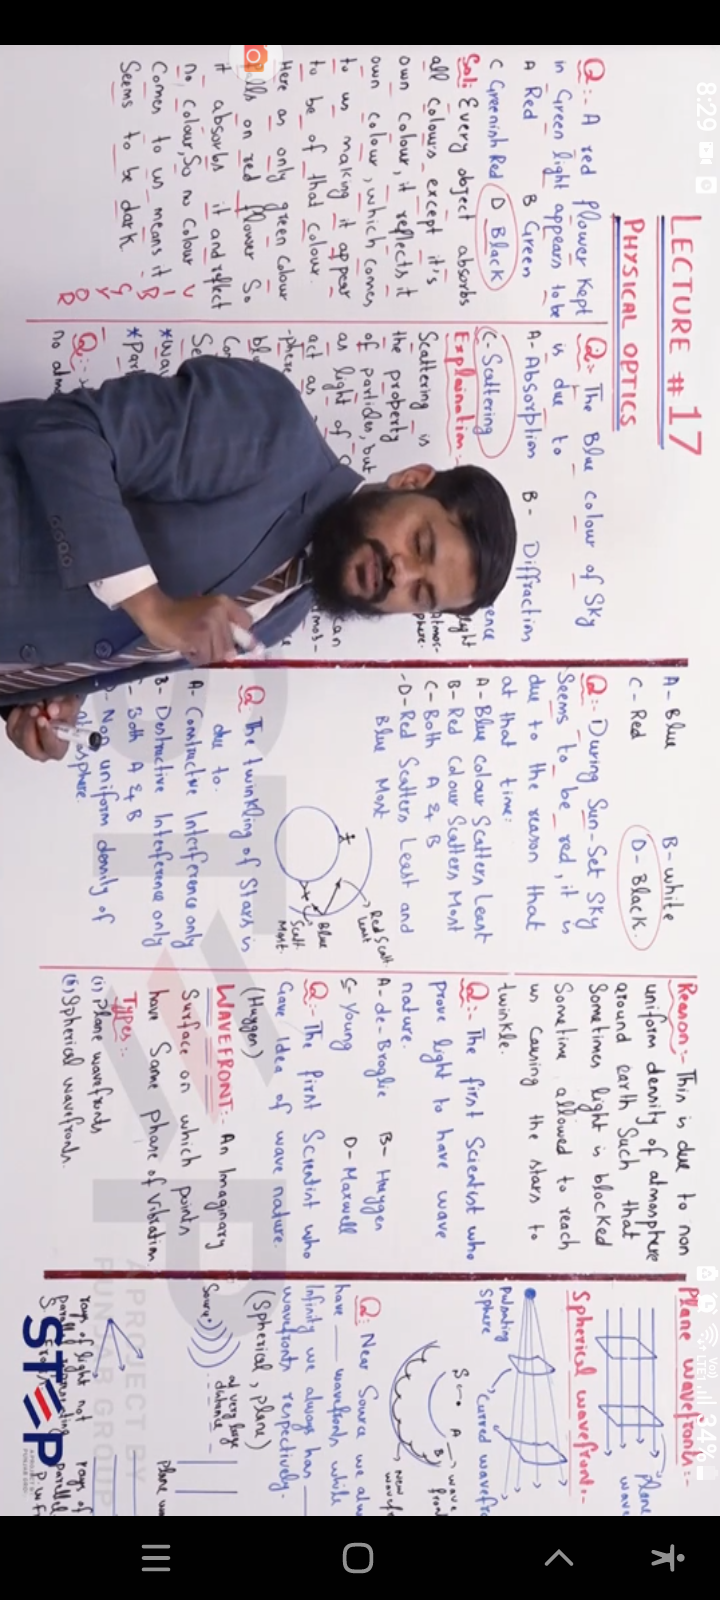 8:29
LTE1 34%
LECTURE # 17
PHYSICAL OPTICS
Q:- A red flower kept
in Green light appears to be
A Red B Green
C Greenish Red D Black
Sol: Every object absorbs
all colours except it's
own colour, it reflects it
own colour, which comes
to us making it appear
to be of that colour.
Here as only green colour
falls on red flower So
it absorbs it and reflect
no colour, So no colour
Comes to us means it
Seems to be dark
V
I
B
G
Y
O
R
Q:- The Blue colour of Sky
is due to
A- Absorption B- Diffraction
C- Scattering
Explaination:-
Scattering is
the property
of particles, but
as light of
act as
-phere.
*Par
Q:-
no atm
A- Blue B- white
C- Red D- Black.
Q:- During Sun-Set Sky
Seems to be red, it is
due to the reason that
at that time:
A- Blue colour Scatters Least
B- Red colour Scatters Most
C- Both A & B
-D- Red Scatters Least and
Blue Most
Red Scatt.
Least
Blue
Scatt.
Most.
Q: The twinkling of Stars is
due to.
A- Constructive Interference only
B- Destructive Interference only
- Both A & B
- Non uniform density of
atmosphere.
Reason:- This is due to non
uniform density of atmosphere
around earth Such that
Sometimes light is blocked
Sometime allowed to reach
us causing the stars to
twinkle.
Q:- The first Scientist who
prove light to have wave
nature.
A- de-Broglie B- Huygen
C- Young D- Maxwell
Q:- The first Scientist who
Gave Idea of wave nature.
(Huygen)
WAVEFRONT:- An Imaginary
Surface on which points
have Same phase of Vibration.
Types:-
(i) Plane wavefronts
(ii) Spherical wavefronts.
Plane wavefronts:-
Plane
wave
Spherical wavefront:-
Pulsating
Sphere
curved wavefr
S A B
wave
front
New
wavefr
Q: Near Source we alw
have — wavefronts while
Infinity we always has —
wavefronts respectively.
(Spherical, Plane)
Source
at very large
distance
Plane w
rays of light not
rays of
parallel
STEP
A PROJECT BY
PUNJAB GROUP